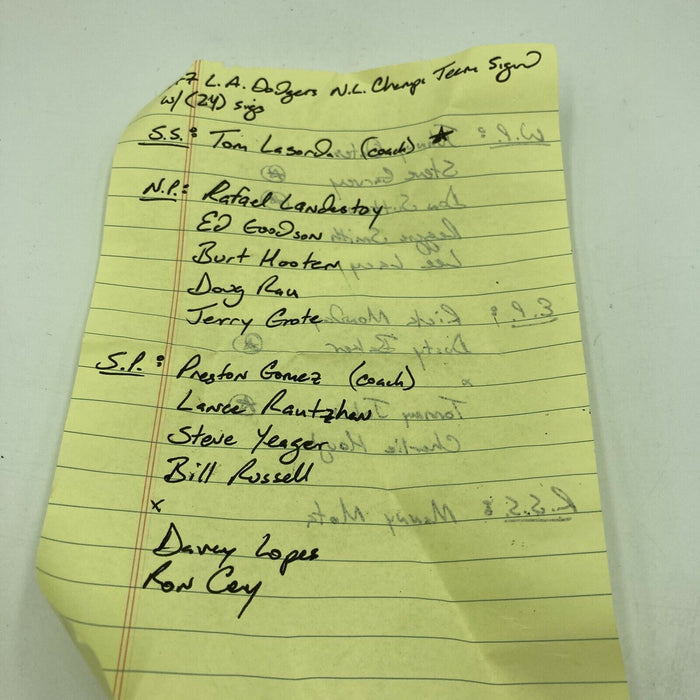 -7 L.A. Dodgers N.L. Champs Team Sign
w/(24) sigs
S.S.: Tom Lasorda (coach) ★
N.P.: Rafael Landestoy
Ed Goodson
Burt Hooten
Doug Rau
Jerry Grote
S.P.: Preston Gomez (coach)
Lance Rautzhan
Steve Yeager
Bill Russell
x
Davey Lopes
Ron Cey
W.P.:
Steve Garvey
Reggie Smith
Lee Lacy
E.P.: Rick Monday
Dusty Baker
x
Tommy John
Charlie Hough
R.S.S.: Manny Mota